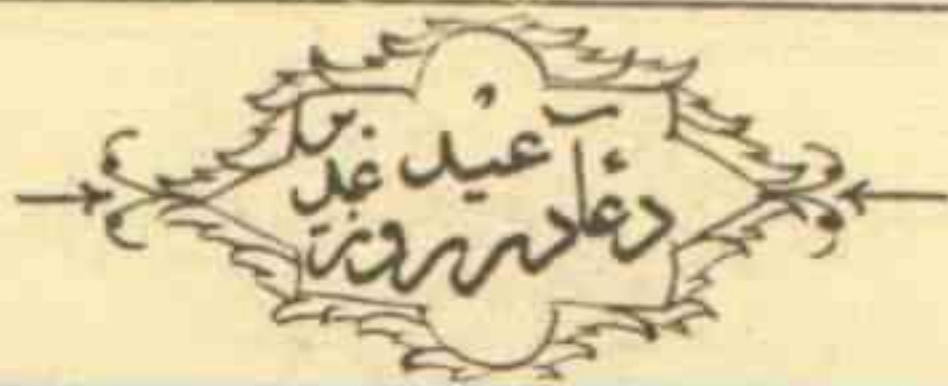 دعا در روز
عید غدیر